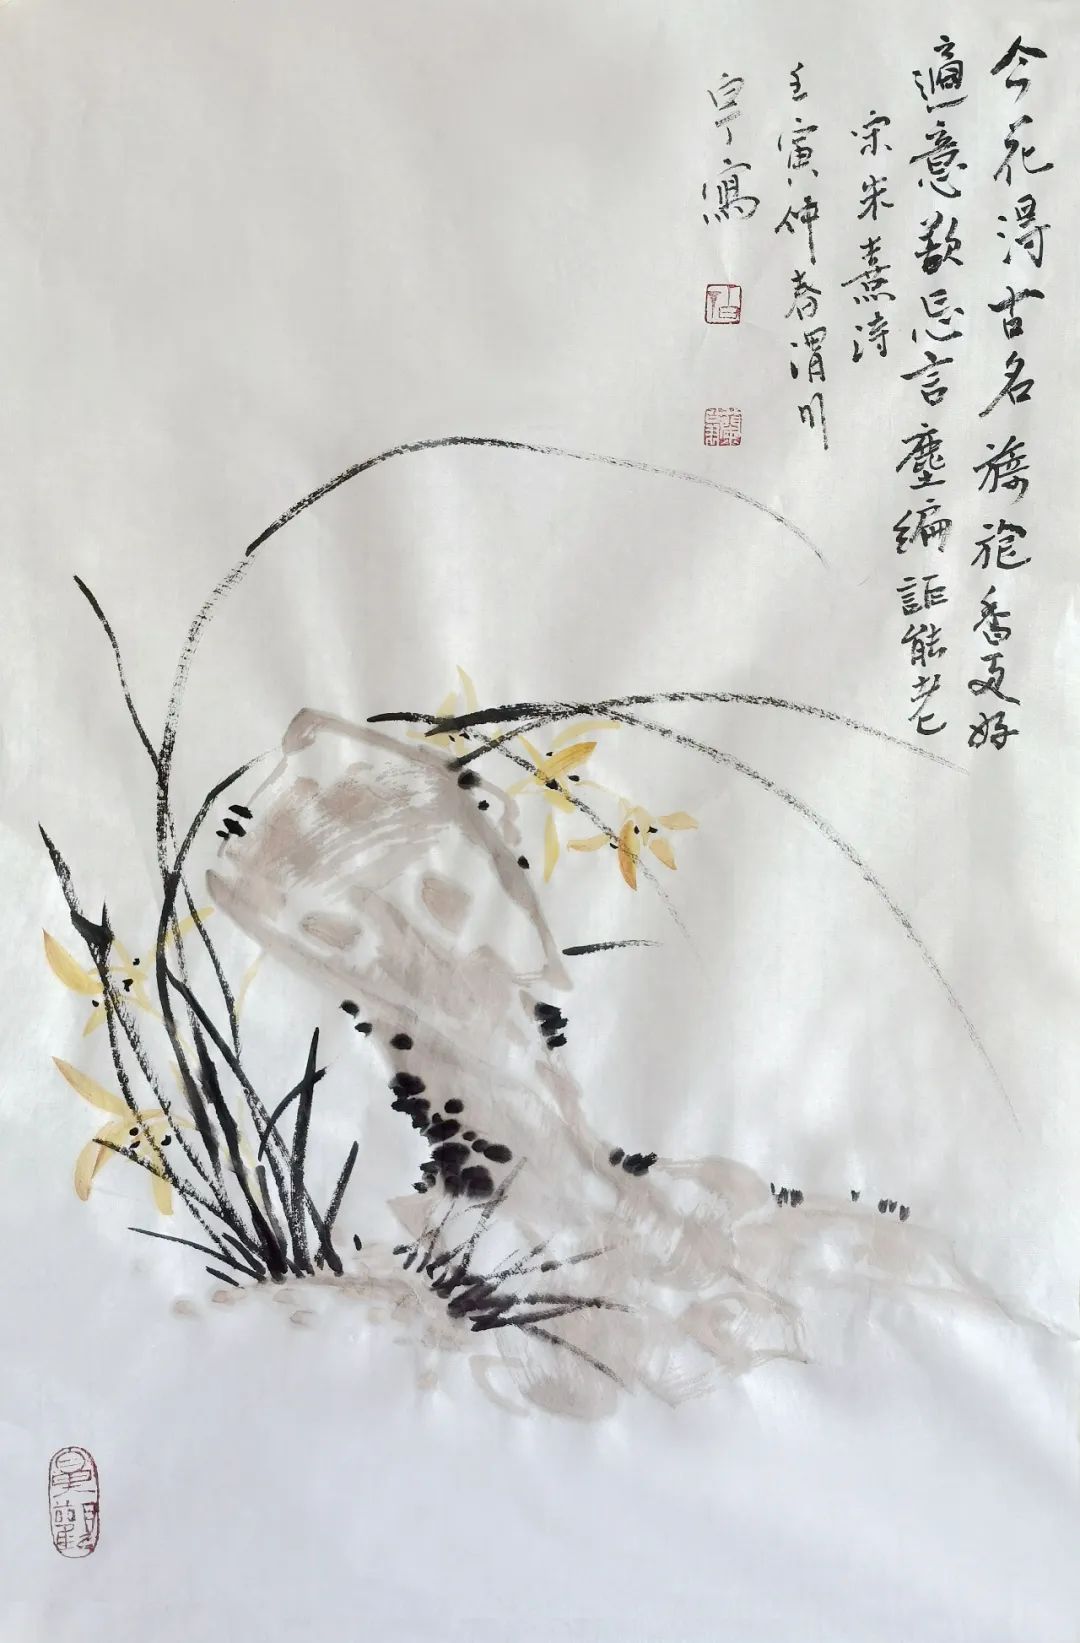 今花得古名旖旎香更好
適意欲忘言塵編詎能老
宋朱熹詩
壬寅仲春渭川
寫